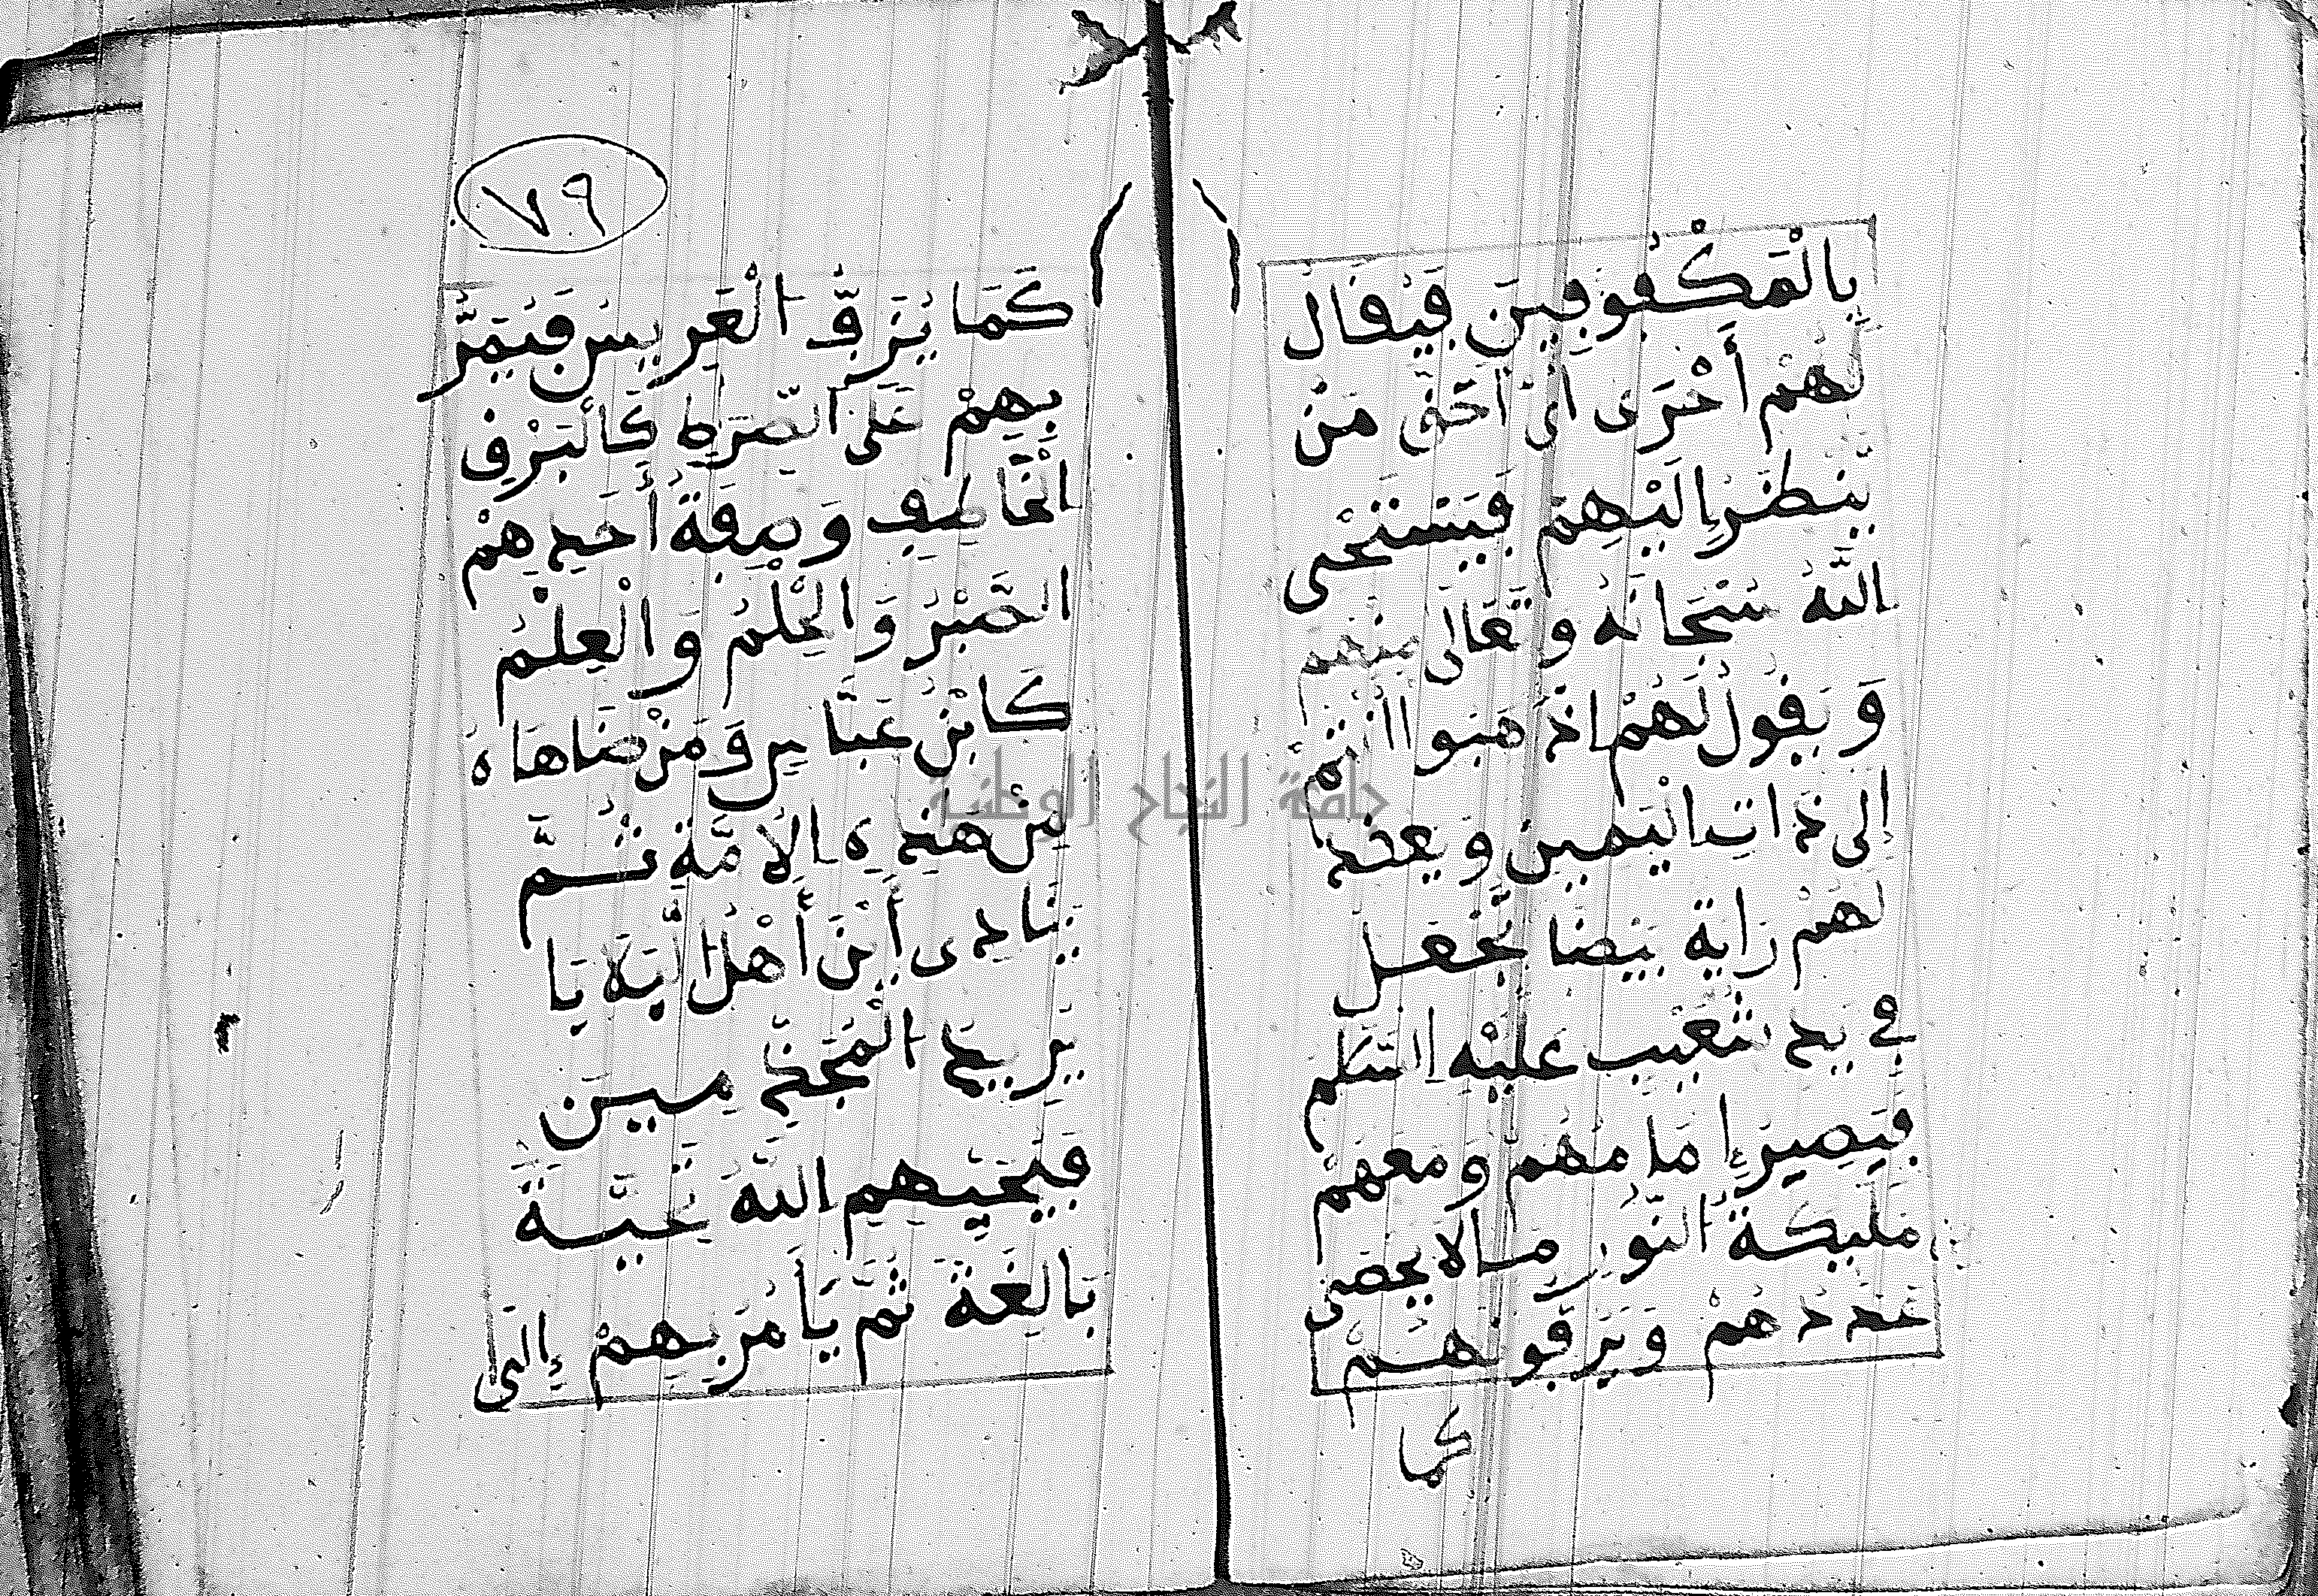 بِالْمَكْفُوفِينَ فَيُقَالُ
لَهُمْ أَحْرَى أَىْ أَحَقُّ مَنْ
يُنظَرُ إِلَيْهِمْ فَيَسْتَحْىِ
اللَّهُ سُبْحَانَهُ وَتَعَالَى مِنْهُمْ
وَيَقُولُ لَهُمْ اذْهَبُوا
إِلَى ذَاتِ الْيَمِينِ وَيعقد
لَهُمْ رَايَة بَيْضَا تُجْعَلُ
في يَدِ شُعَيْب عَلَيْهِ السَّلَم
فَيَصِيرُ إِمَامُهُم وَمَعَهُمْ
مَلَيِكَةُ النُّورِ مَا لاَ يُحْصَى
عَدَدُهُمْ وَيَزُفُّونَهُمْ
كما
٧٩
كَمَا يُزَفُّ الْعَرِيسُ فَيَمُرُّ
بِهِمْ عَلَى الصِّرَطِ كَالْبَرْقِ
الْخَاطِفِ وَصِفَةُ أَحَدِهِمْ
الصَّبْرُ وَالْحِلْمُ وَالْعِلْمُ
كَابْنِ عَبَّاسٍ وَمَنْ ضَاهَاهُ
مِنْ هَذِهِ الاُمَّةِ ثُمَّ
يُنَادِى أَيْنَ أَهْلُ الْبَلاَيَا
يُرِيدُ الْمُجَذَّمِينَ
فَيُحَيِّيهِمِ اللَّهُ تَحِيَّةً
بَالِغَةً ثُمَّ يَأْمُرُ بِهِمْ إِلَى
جامعة النجاح الوطنية